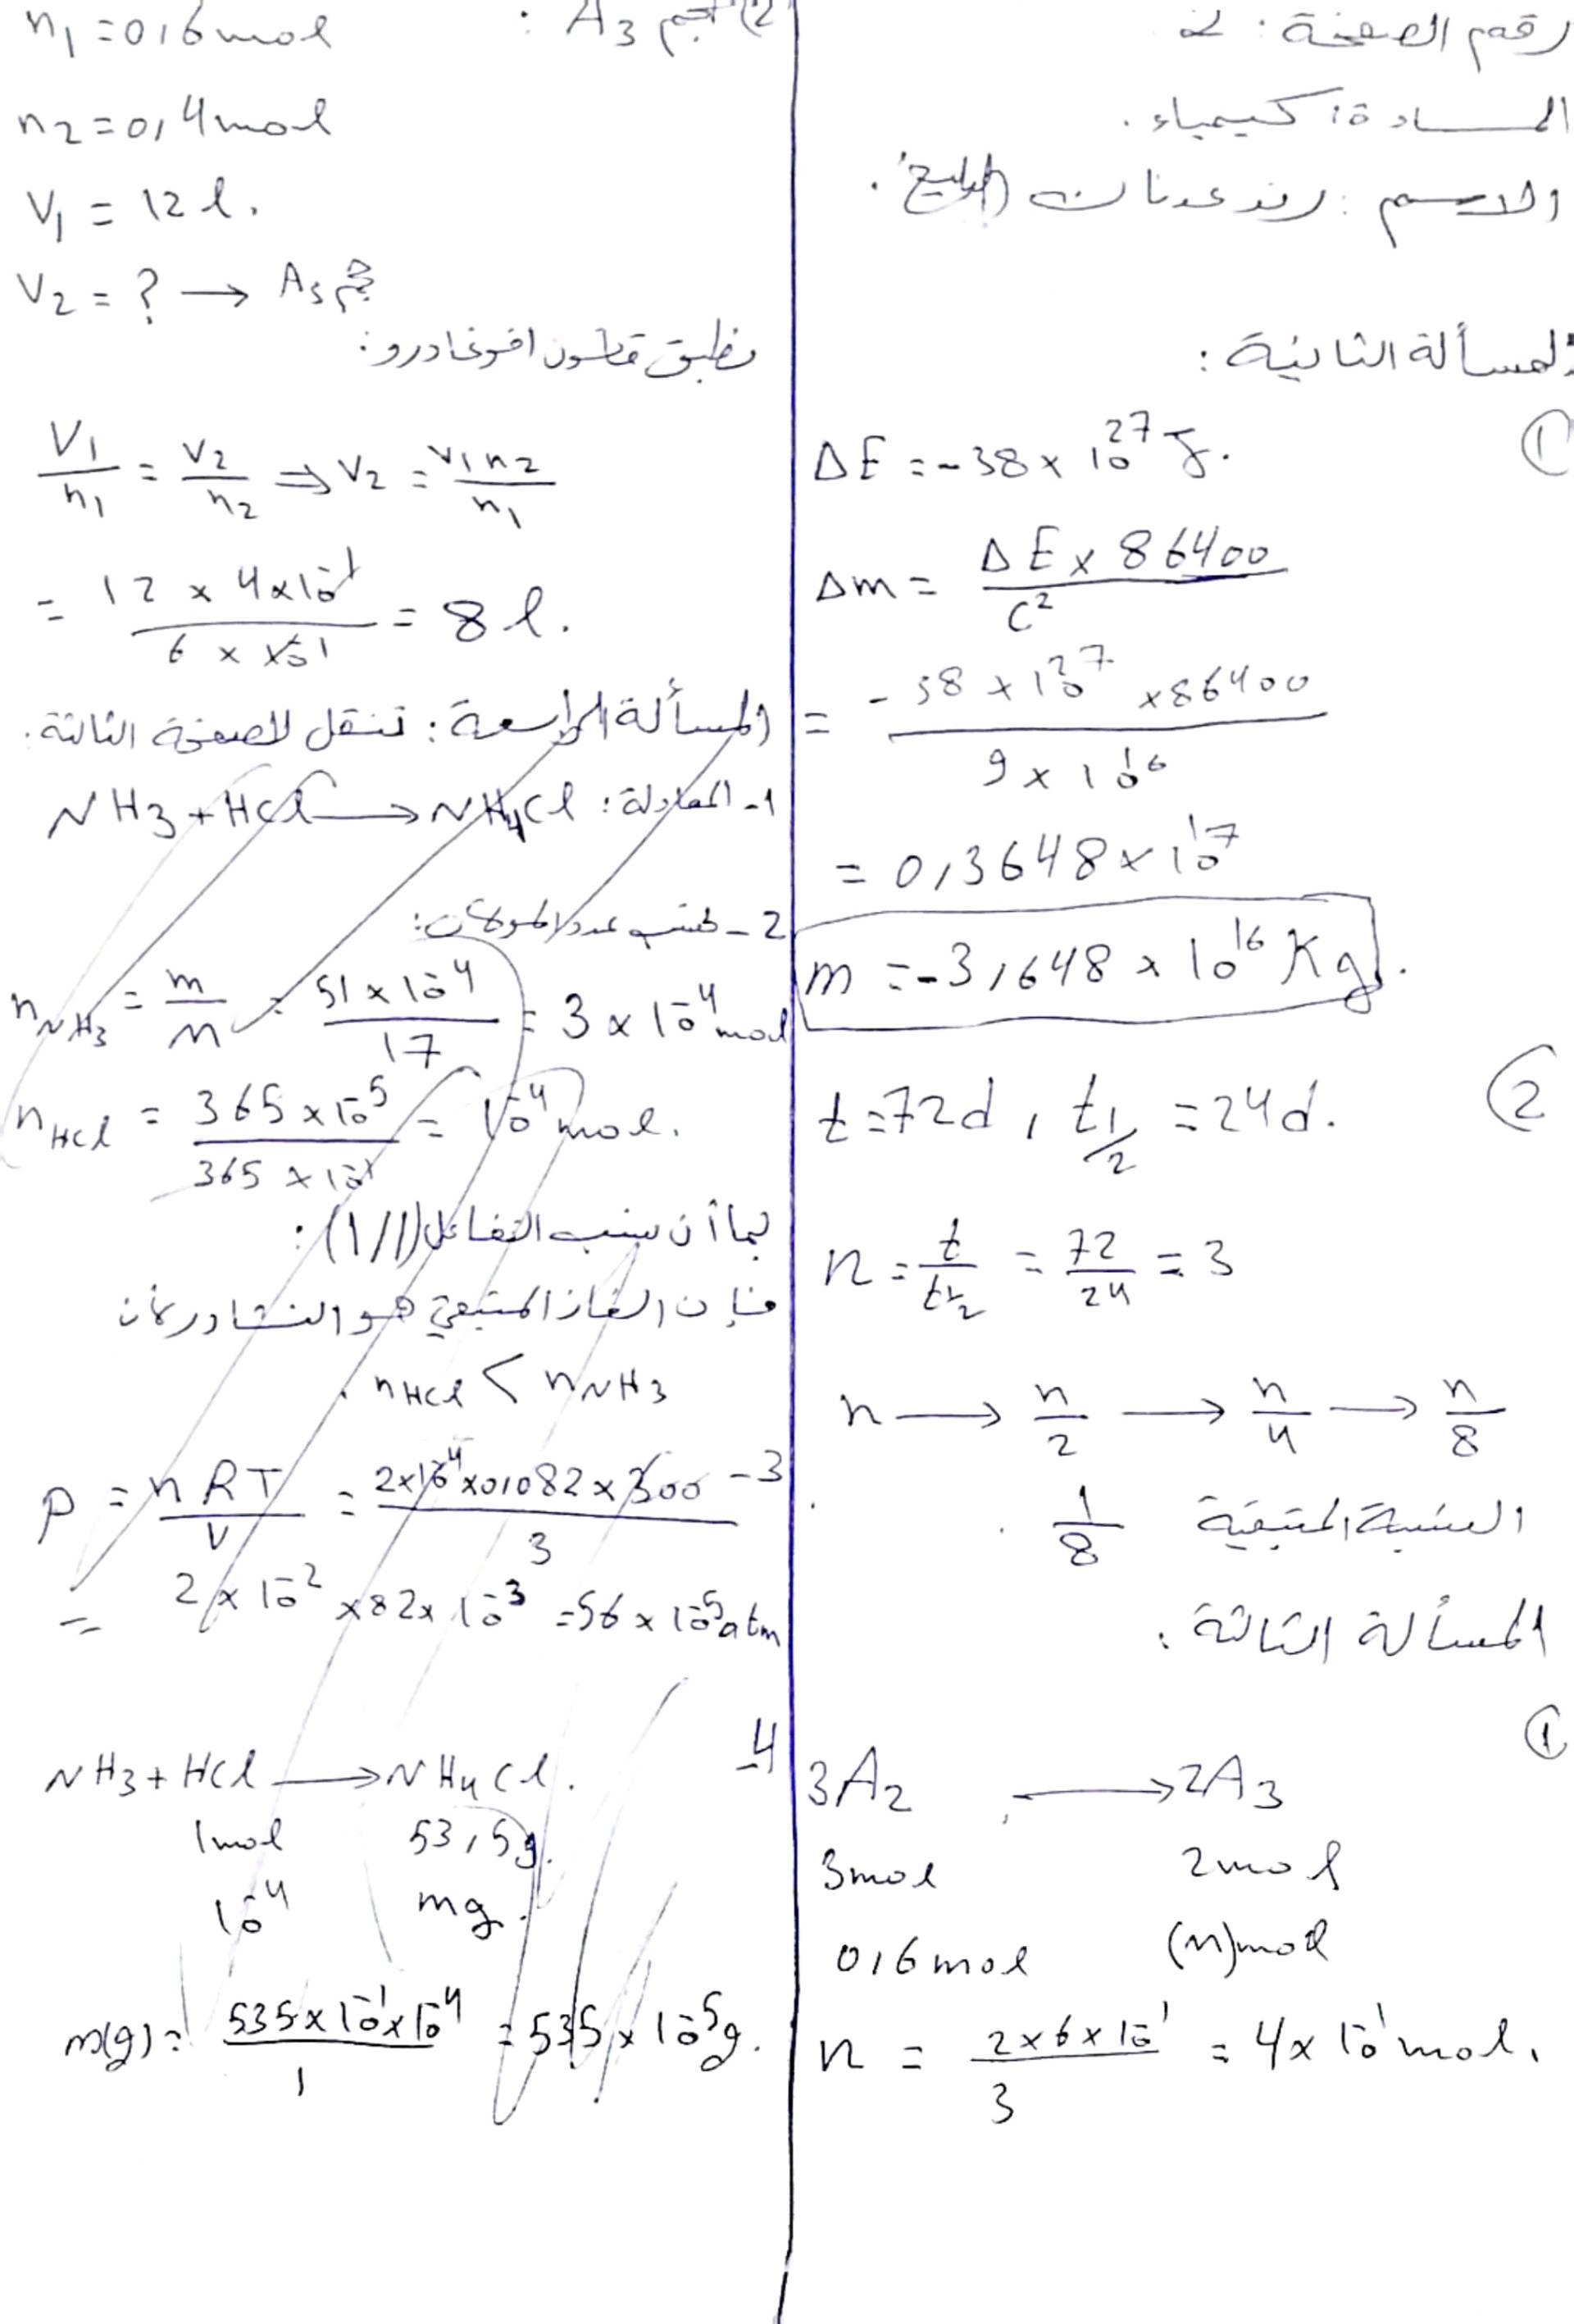 رقم الصفحة: 2
المـــادة: كيمياء.
الاسم: رند عدنان
المسألة الثانية:
①
ΔE = -38 × 10²⁷ J.
Δm = ΔE × 86400 / C²
= -38 × 10²⁷ × 86400 / 9 × 10¹⁶
= 0,3648 × 10¹⁷
m = -3,648 × 10¹⁶ Kg.
②
t = 72d , t1/2 = 24d.
n = t / t1/2 = 72 / 24 = 3
n → n/2 → n/4 → n/8
النسبة المتبقية 1/8
المسألة الثالثة:
①
3A₂ → 2A₃
3mol 2mol
0,6mol (n)mol
n = 2 × 6 × 10⁻¹ / 3 = 4 × 10⁻¹ mol.
2) حجم A₃ :
n₁ = 0,6 mol
n₂ = 0,4 mol
V₁ = 12 l.
V₂ = ? → حجم A₃
نطبق قانون افوغادرو:
V₁/n₁ = V₂/n₂ ⇒ V₂ = V₁n₂/n₁
= 12 × 4×10⁻¹ / 6 × 10⁻¹ = 8 l.
المسألة الرابعة: تنقل للصفحة الثالثة.
1- المعادلة: NH₃ + HCl → NH₄Cl
2- نحسب عدد المولات:
nNH₃ = m/M = 51 × 10⁻⁴ / 17 = 3 × 10⁻⁴ mol
nHCl = 365 × 10⁻⁵ / 365 × 10⁻¹ = 10⁻⁴ mol.
بما أن نسب التفاعل (1/1):
فإن الغاز المتبقي هو النشادر لأن
nHCl < nNH₃ .
3- P = nRT/V = 2×10⁻⁴×0,082×300 / 3
= 2 × 10⁻² × 82 × 10⁻³ = 56 × 10⁻⁵ atm
4-
NH₃ + HCl → NH₄Cl.
1mol 53,5g.
10⁻⁴ mg.
m(g) = 535 × 10⁻¹ × 10⁻⁴ / 1 = 535 × 10⁻⁵ g.